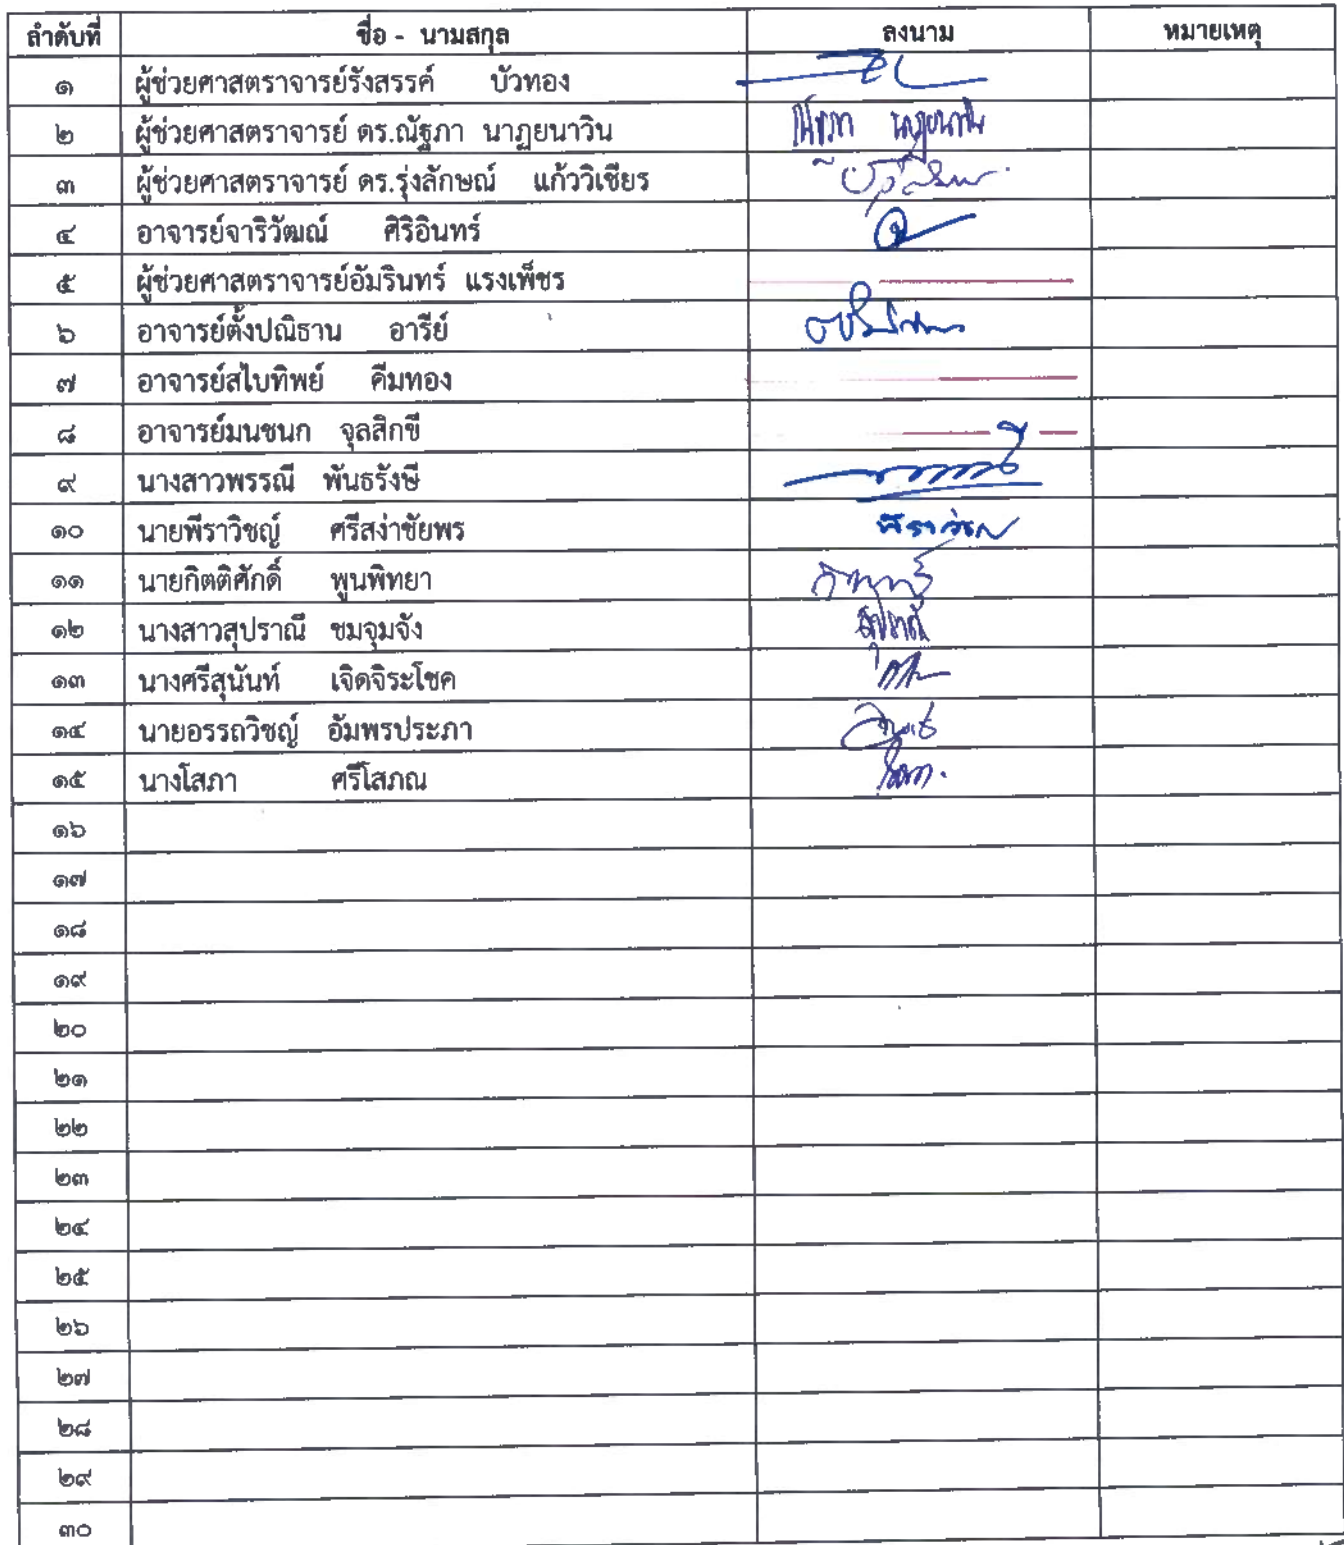 ลำดับที่ ชื่อ - นามสกุล ลงนาม หมายเหตุ
๑ ผู้ช่วยศาสตราจารย์รังสรรค์ บัวทอง
๒ ผู้ช่วยศาสตราจารย์ ดร.ณัฐภา นาฏยนาวิน ณัฐภา นาฏยนาวิน
๓ ผู้ช่วยศาสตราจารย์ ดร.รุ่งลักษณ์ แก้ววิเชียร
๔ อาจารย์จาริวัฒณ์ ศิริอินทร์
๕ ผู้ช่วยศาสตราจารย์อัมรินทร์ แรงเพ็ชร
๖ อาจารย์ตั้งปณิธาน อารีย์
๗ อาจารย์สไบทิพย์ คีมทอง
๘ อาจารย์มนชนก จุลสิกขี
๙ นางสาวพรรณี พันธรังษี
๑๐ นายพีราวิชญ์ ศรีสง่าชัยพร
๑๑ นายกิตติศักดิ์ พูนพิทยา
๑๒ นางสาวสุปราณี ชมจุมจัง สุปราณี
๑๓ นางศรีสุนันท์ เจิดจิระโชค
๑๔ นายอรรถวิชญ์ อัมพรประภา
๑๕ นางโสภา ศรีโสภณ โสภา
๑๖
๑๗
๑๘
๑๙
๒๐
๒๑
๒๒
๒๓
๒๔
๒๕
๒๖
๒๗
๒๘
๒๙
๓๐